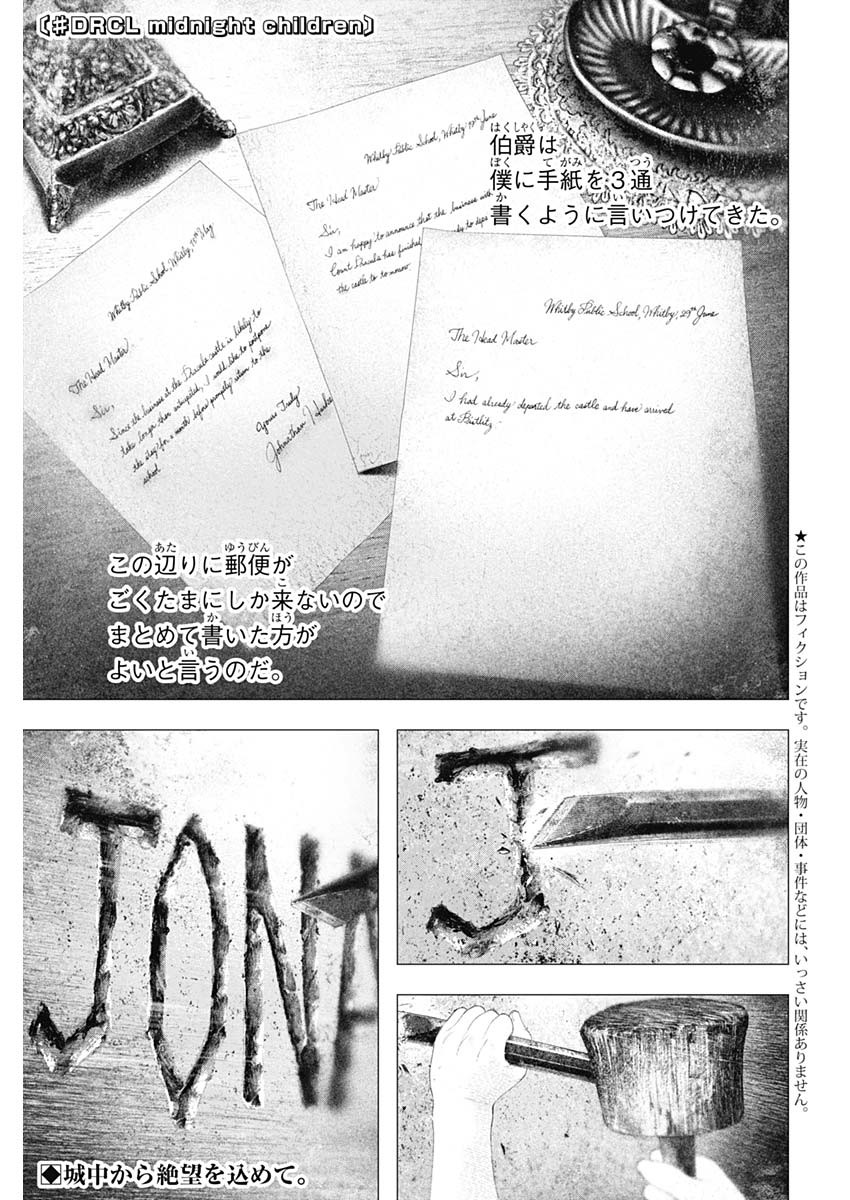 【#DRCL midnight children】
伯爵は
僕に手紙を3通
書くように言いつけてきた。
Whitby Public School, Whitby 19th June
The Head Master
Sir,
I am happy to announce that the business with
Count Dracula has finished
the castle to to morrow.
Whitby Public School, Whitby, 29th June
The Head Master
Sir,
I had already departed the castle and have arrived
at Bistlitz.
Whitby Public School, Whitby,
The Head Master
Sir,
Since the business at the Dracula castle is likely to
take longer than anticipated, I would like to postpone
the stay for a month before promptly return to the
school.
Yours Truly
Johnathan
この辺りに郵便が
ごくたまにしか来ないので
まとめて書いた方が
よいと言うのだ。
J
JONA
◆城中から絶望を込めて。
★この作品はフィクションです。実在の人物・団体・事件などには、いっさい関係ありません。